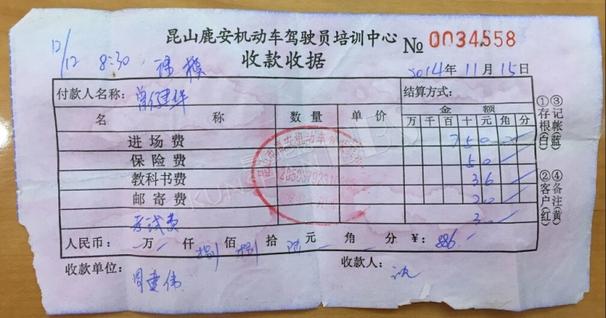 昆山鹿安机动车驾驶员培训中心 No 0034558
12/12 8:30
收款收据 2014年11月15日
付款人名称: 结算方式:
名称 数量 单价 金额
万 千 百 十 元 角 分
进场费 750
保险费 50
教科书费 36
邮寄费 20
考试费 30
人民币: 万 仟 捌佰 捌拾 陆元 角 分 ¥: 886
收款单位: 周建伟 收款人:
①存根(白) ③记帐(蓝)
②客户(红) ④备注(黄)